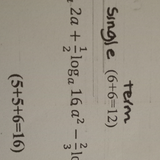 single term
(6+6=12)
2a + \frac{1}{2} log_a 16a² − \frac{2}{3} lo
(5+5+6=16)